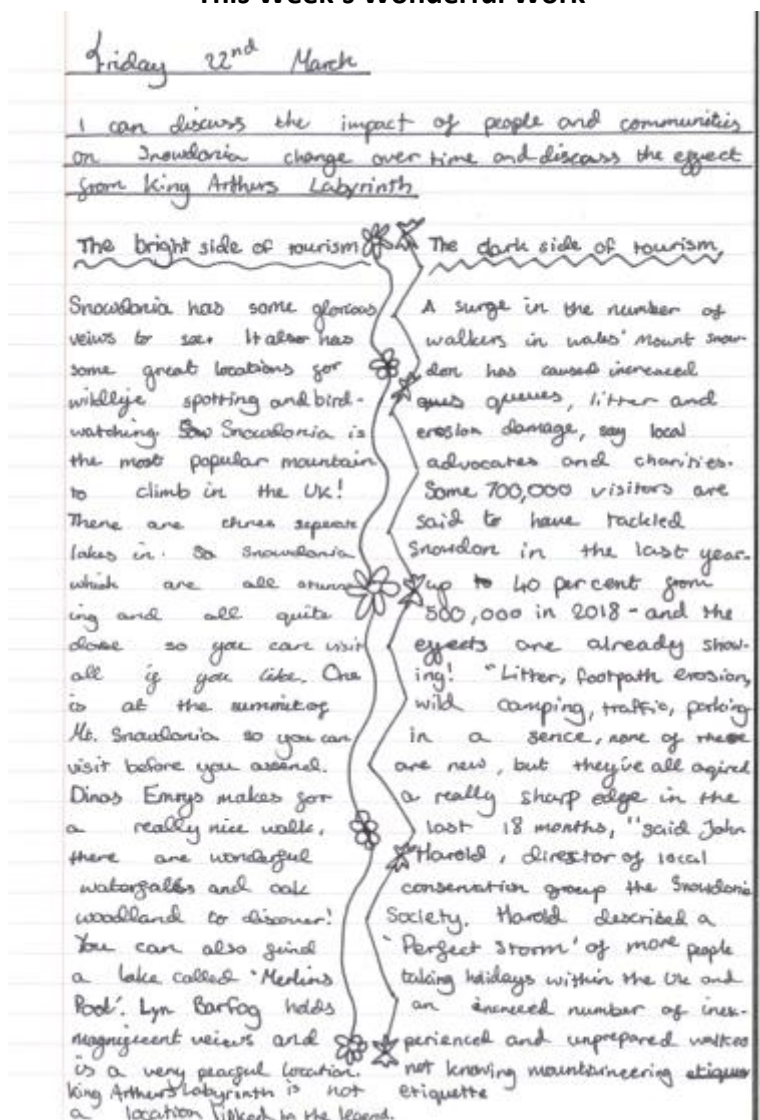 This Week's Wonderful Work
Friday 22nd March
I can discuss the impact of people and communities
on Snowdonia change over time and discuss the effect
from King Arthurs Labyrinth
The bright side of tourism
Snowdonia has some glorious
veiws to see. It also has
some great locations for
wildlife spotting and bird-
watching. Snowdonia is
the most popular mountain
to climb in the UK!
There are three seperate
lakes in. So Snowdonia
which are all stunn-
ing and all quite
close so you can visit
all if you like. One
is at the summit of
Mt. Snowdonia so you can
visit before you assend.
Dinas Emrys makes for
a really nice walk,
there are wonderful
waterfalls and oak
woodland to discover!
You can also find
a lake called 'Merlins
Pool'. Lyn Barfog holds
magnificent veiws and
is a very peacful location.
King Arthurs Labyrinth is not
a location linked to the legend.
The dark side of tourism
A surge in the number of
walkers in wales' Mount Snow-
don has caused increaced
queues, litter and
erosion damage, say local
advocates and charities.
Some 700,000 visitors are
said to have tackled
Snowdon in the last year-
up to 40 per cent from
500,000 in 2018 - and the
effects are already show-
ing! "Litter, footpath erosion,
wild camping, traffic, parking
in a sence, none of these
are new, but they've all aqired
a really sharp edge in the
last 18 months," said John
Harold, director of local
conservation group the Snowdonia
Society. Harold described a
'Perfect Storm' of more people
taking holidays within the Uk and
an increed number of inex-
perienced and unprepared walkers
not knowing mountaineering
etiquette